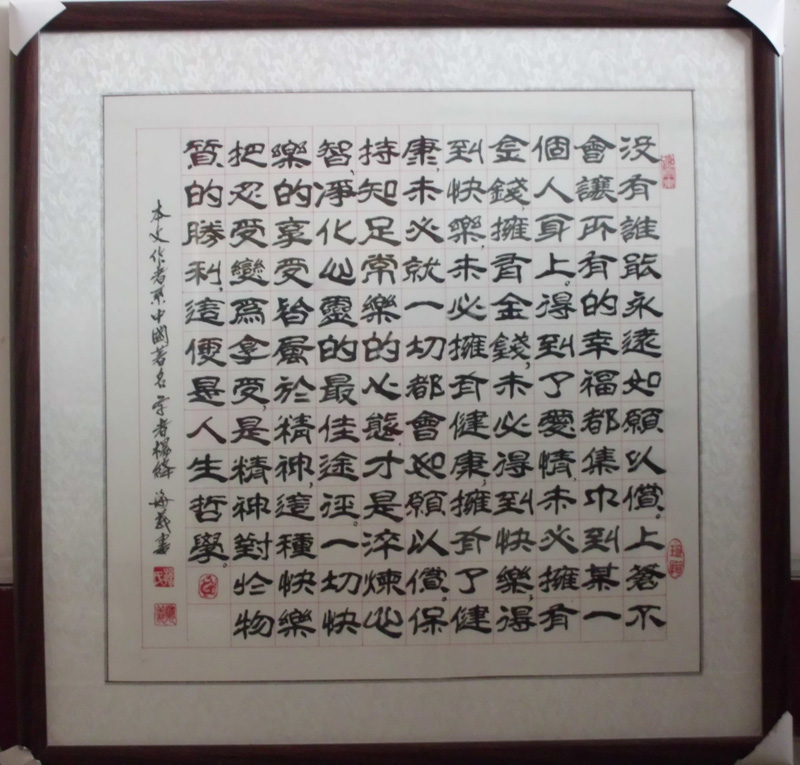 没有誰能永遠如願以償。上蒼不
會讓所有的幸福都集中到某一
個人身上。得到了愛情,未必擁有
金錢,擁有金錢,未必得到快樂,得
到快樂,未必擁有健康,擁有了健
康,未必就一切都會如願以償。保
持知足常樂的心態,才是淬煉心
智,淨化心靈的最佳途徑。一切快
樂的享受皆屬於精神,這種快樂
把忍受變爲享受,是精神對於物
質的勝利,這便是人生哲學。
本文作者系中國著名学者楊絳 海義書